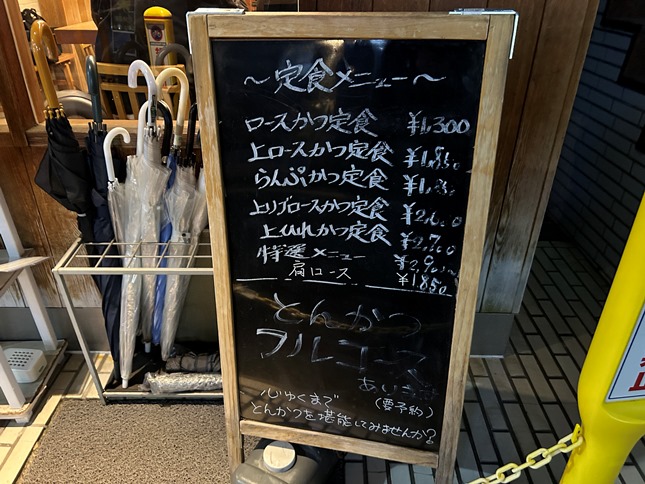 〜定食メニュー〜
ロースかつ定食 ¥1,300
上ロースかつ定食
らんぷかつ定食
上リブロースかつ定食
上ひれかつ定食
特選メニュー
肩ロース ¥1850
とんかつ
フルコース
(要予約)
心ゆくまで
とんかつを堪能してみませんか?